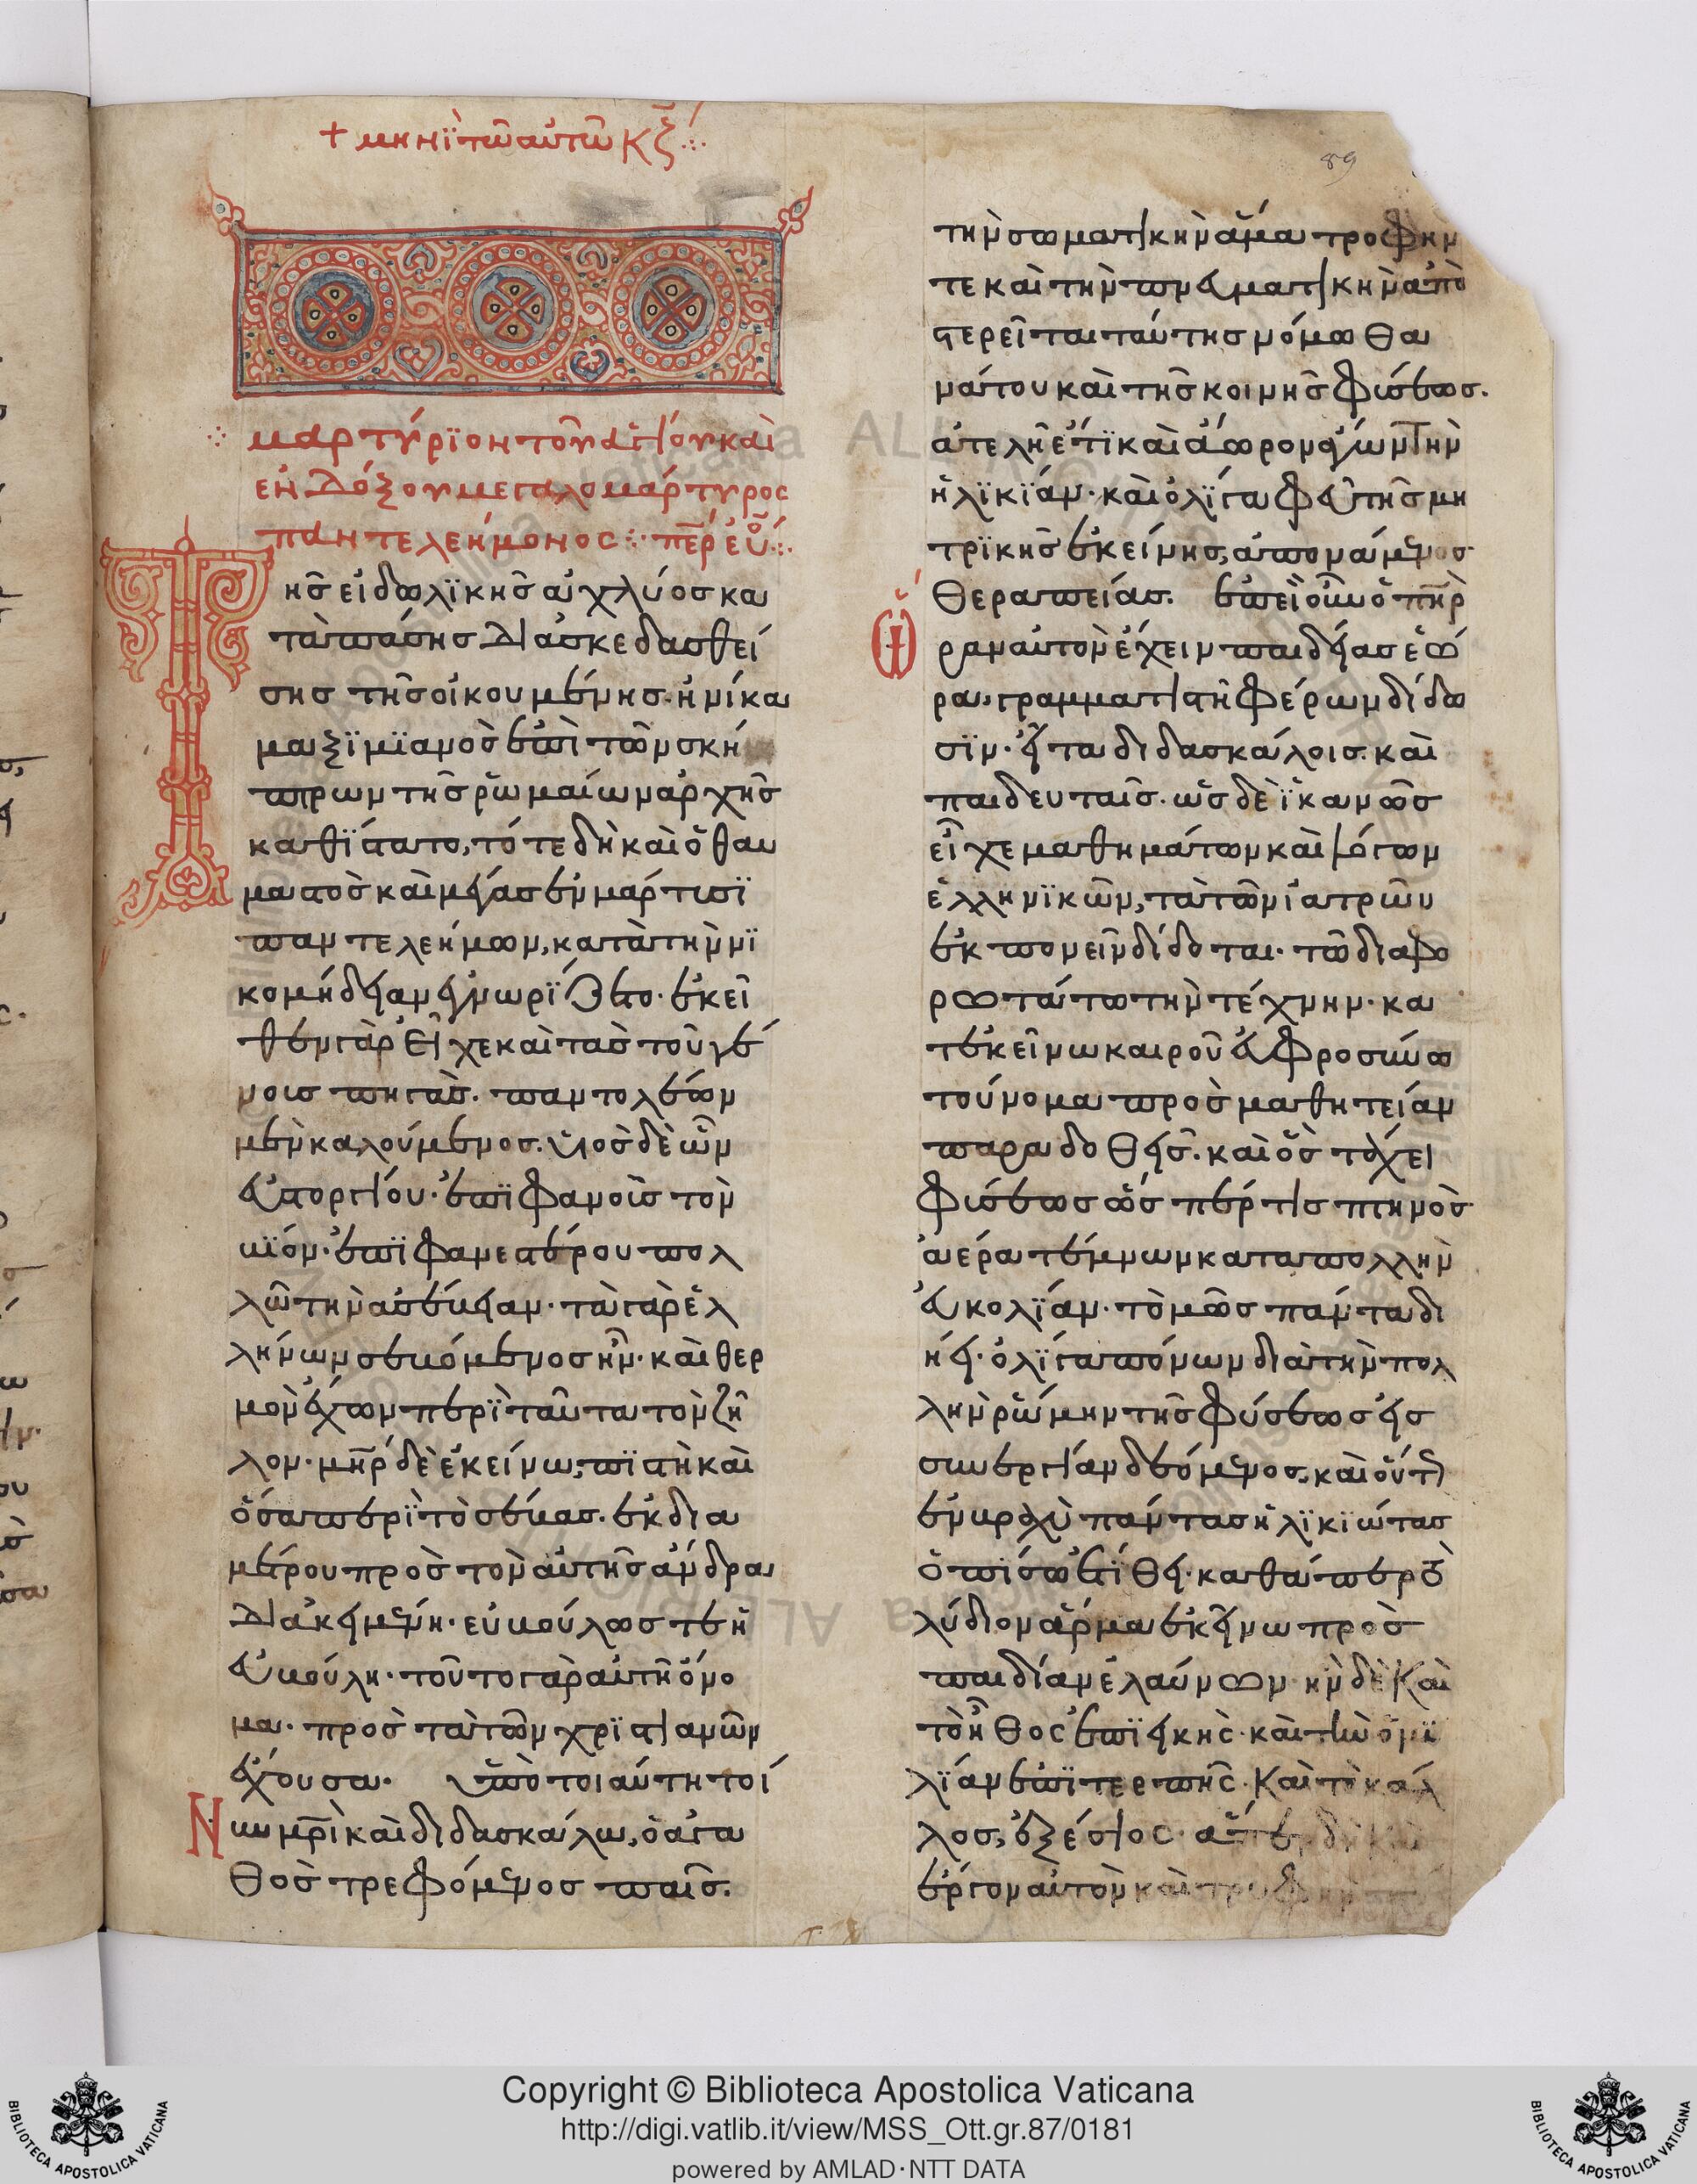 + μηνὶ τῶ αὐτῶ κζ
89
μαρτύριον τοῦ ἁγίου καὶ
ἐνδόξου μεγαλομάρτυρος
παντελεήμονος: π̅ε̅ρ ἐυ̅
Τῆς εἰδωλϊκῆς ἀχλύος κα
τὰ πάσης διασκεδασθεί
σης τῆς οἰκουμένης. ἡνίκα
μαξϊμϊανὸς ἐπὶ τῶν σκή
πτρων τῆς ῥωμαίων ἀρχῆς
καθΐστατο, τότε δὴ καὶ ὁ θαυ
μαστὸς καὶ μέγας ἐν μάρτυσϊ
παντελεήμων, κατὰ τὴν νϊ
κομήδειαν ἐγνωρϊζετο. ἐκεῖ
θεν γὰρ εἶχε καὶ τὰς τοῦ γέ
νους πηγάς. παντολέων
μὲν καλούμενος. υἱὸς δὲ ὢν
εὐστοργίου. ἐπϊφανοῦς τὸν
βϊόν. ἐπϊφανεστέρου πολ
λῶ τὴν ἀσέβειαν. τὰ γὰρ ἑλ
λήνων σεβόμενος ἦν. καὶ θερ
μὸν ἔχων περὶ ταῦτα τὸν ζῆ
λον. μ̅η̅ρ δὲ ἐκείνω, πϊστὴ καὶ
ὅσα περὶ τὸ σέβας. ἐκ δια
μέτρου πρὸς τὸν αὐτῆς ἄνδρα
διακειμένη. εὐβούλως τε ἡ
εὐβούλη. τοῦτο γὰρ αὐτῆ ὄνο
μα. πρὸς τὰ τῶν χρϊστιανῶν
ἔχουσα. ὑπὸ τοιαύτη τοί
Νυν μ̅ρ̅ὶ καὶ διδασκάλω, ὁ ἀγα
θὸς τρεφόμενος παῖς.
τὴν σωματικὴν ἅμα τροφήν
τε καὶ τὴν πνευματικὴν ἀπο
στερεῖται ταύτης μόνω θα
νάτου καὶ τῆς κοινῆς φύσεως.
ἀτελὴ ἔτϊ καὶ ἄωρον ἄγων τὴν
ἡλϊκϊαν. καὶ ὀλϊγα φεῦ τῆς μη
τρϊκῆς ἐκείνης, ἀπονάμενος
θεραπείας. ἐπεὶ οὖν ὁ π̅η̅ρ
Ὥραν αὐτὸν ἔχειν παιδείας ἑώ
ρα, γραμματιστῆ φέρων δίδω
σϊν. εἶτα διδασκάλοις. καὶ
παιδευταῖς. ὡς δὲ ἱκανῶς
εἶχε μαθημάτων καὶ λόγων
ἑλληνϊκῶν, τὰ τῶν ἰατρῶν
ἐκπονεῖν δίδοται. τῶ διαφο
ρωτάτω τὴν τέχνην. κα
τ᾿ ἐκεῖνω καιροῦ εὐφροσύνω
τοὔνομα πρὸς μαθητείαν
παραδοθείς. καὶ ὃς τάχει
φύσεως ὥσπέρ τις πτηνὸς
ἀέρα τέμνων κατὰ πολλὴν
εὐκολϊαν. τὸ μέσως πάντα δι
ήει. ὀλϊγα πόνων διὰ τὴν πολ
λὴν ῥώμην τῆς φύσεως εἰς
συνεργίαν δεόμενος, καὶ οὕτως
ἐν βραχὺ πάντας ἡλϊκϊώτας
ὀπίσω ἐτϊθει. καθάπερ
λύδιον ἅρμα ἐκείνω πρὸς
παιδίαν ἐλαύνων. ἦν δὲ καὶ
τὸ ἦθος ἐπϊεικής. καὶ τὴν ὁμϊ
λϊαν ἐπϊτερπής. καὶ τὸ κάλ
λος, ἐξέσιος.
ἔργον αὐτὸν καὶ
Copyright © Biblioteca Apostolica Vaticana
http://digi.vatlib.it/view/MSS_Ott.gr.87/0181
powered by AMLAD·NTT DATA
BIBLIOTECA APOSTOLICA VATICANA
BIBLIOTECA APOSTOLICA VATICANA